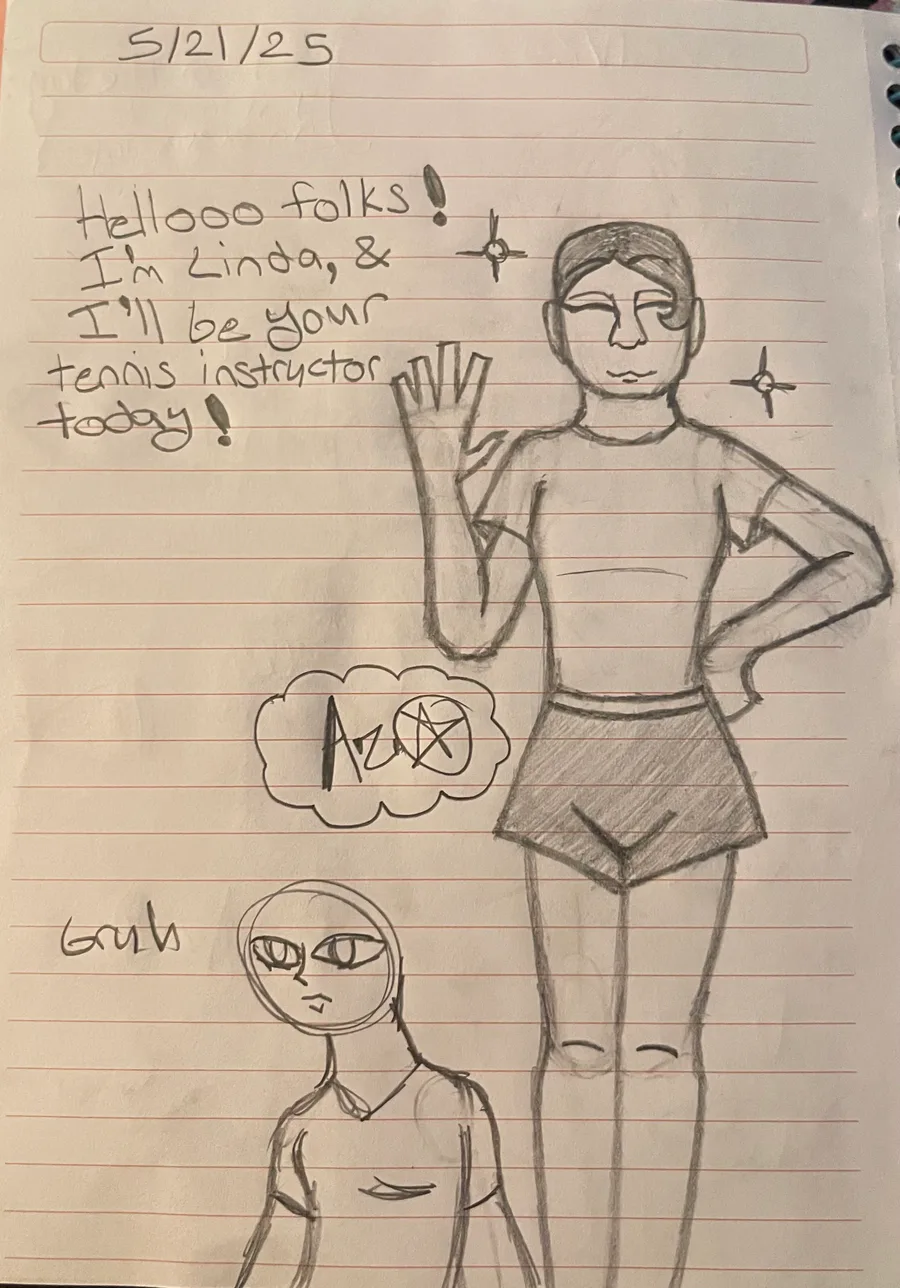 5/21/25
Hellooo folks!
I'm Linda, &
I'll be your
tennis instructor
today!
Az